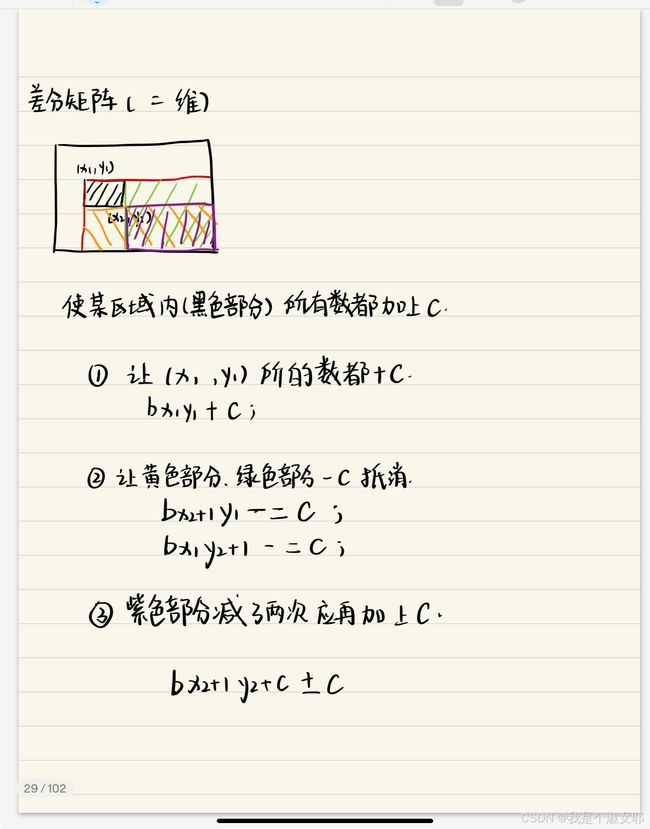 差分矩阵(二维)
(x1,y1)
(x2,y2)
使某区域内(黑色部分)所有数都加上C.
① 让(x1,y1)所的数都+C.
bx1y1+C;
② 让黄色部分、绿色部分-C抵消.
bx2+1y1-=C;
bx1y2+1-=C;
③ 紫色部分减了两次应再加上C.
bx2+1y2+C±C
29/102
CSDN @我是个淑女耶